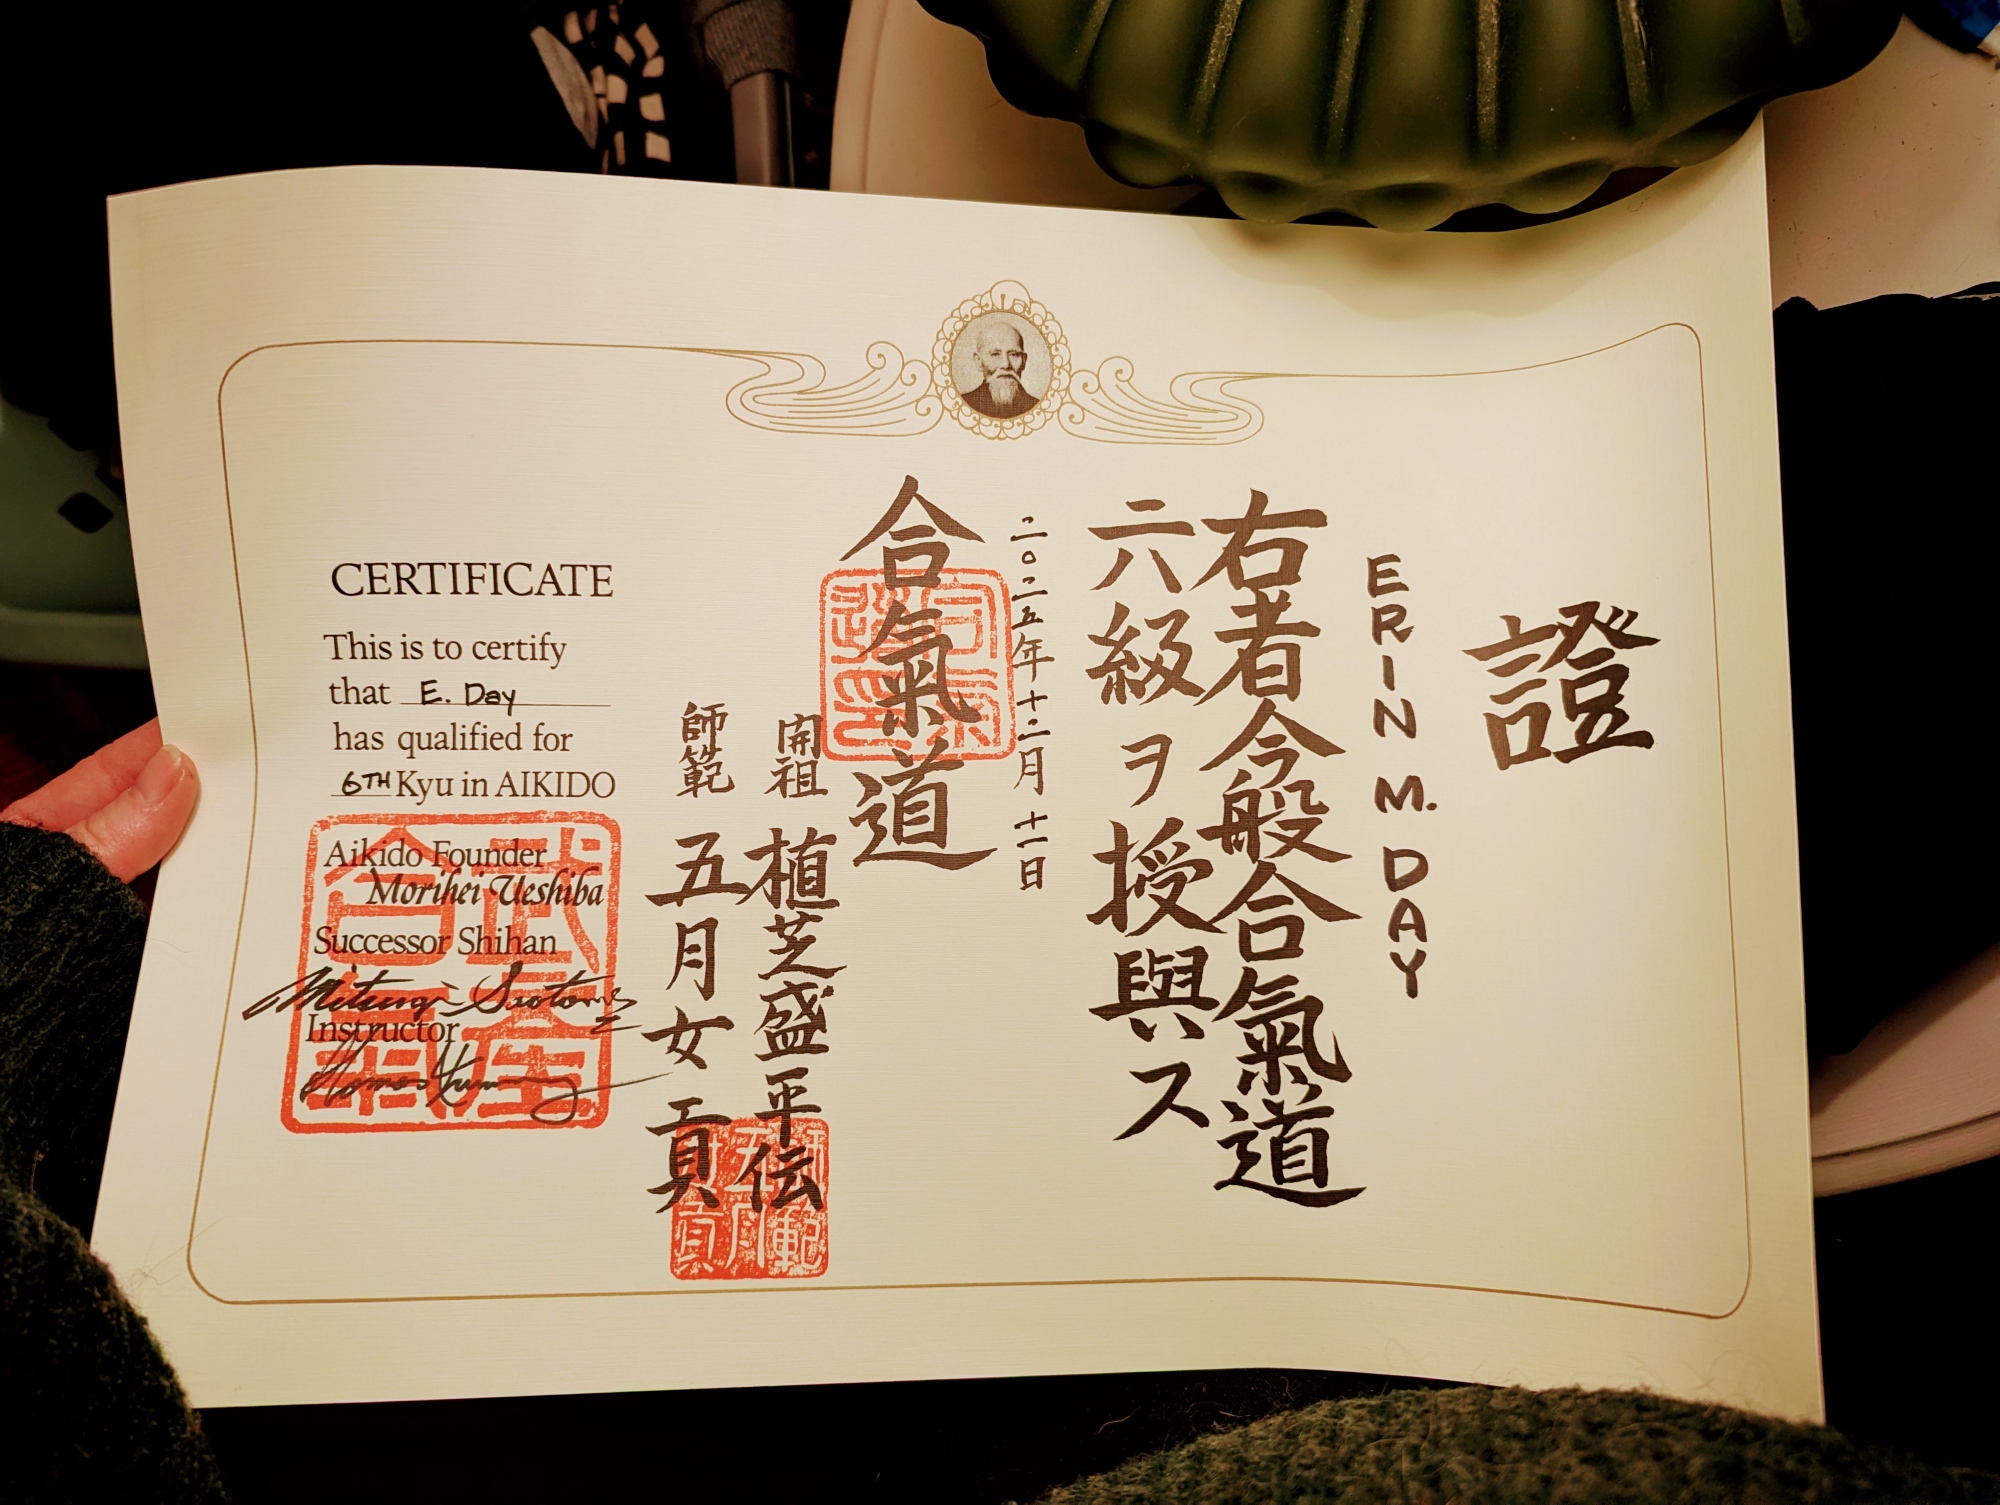 證
ERIN M. DAY
右者今般合氣道
六級ヲ授與ス
二〇二五年十二月十一日
合氣道
開祖 植芝盛平伝
師範 五月女貢
CERTIFICATE
This is to certify
that E. Day
has qualified for
6TH Kyu in AIKIDO
Aikido Founder
Morihei Ueshiba
Successor Shihan
Mitsugi Saotome
Instructor